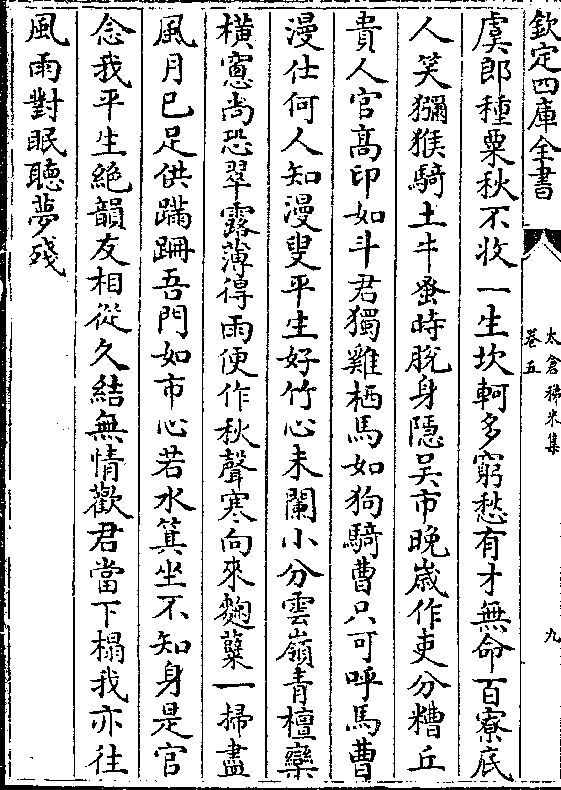 欽定四庫全書
太倉稊米集
卷五
九
虞郎種粟秋不收一生坎軻多窮愁有才無命百寮底
人笑獼猴騎土牛蚤時脫身隱吳市晚嵗作吏分糟丘
貴人官高印如斗君獨雞栖馬如狗騎曹只可呼馬曹
漫仕何人知漫叟平生好竹心未闌小分雲嶺青檀欒
橫窻尚恐翠露薄得雨便作秋聲寒向來麴糵一掃盡
風月已足供蹣跚吾門如市心若水箕坐不知身是官
念我平生絶韻友相從久結無情歡君當下榻我亦往
風雨對眠聽夢殘